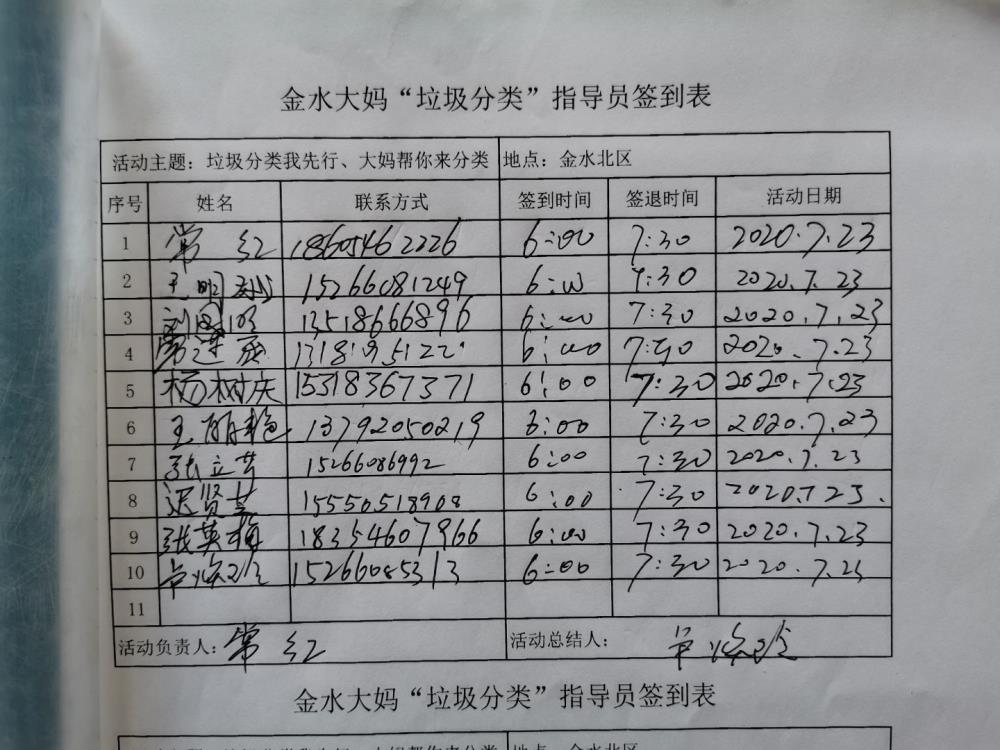 金水大妈“垃圾分类”指导员签到表
活动主题：垃圾分类我先行、大妈帮你来分类 地点：金水北区
序号 姓名 联系方式 签到时间 签退时间 活动日期
1 常红 18605462226 6:00 7:30 2020.7.23
2 王明 15266081249 6:00 7:30 2020.7.23
3 刘 13518666896 6:00 7:30 2020.7.23
4 常莲 6:00 7:30 2020.7.23
5 杨树庆 15318367371 6:00 7:30 2020.7.23
6 王丽艳 13792050219 6:00 7:30 2020.7.23
7 张立芳 15266086992 6:00 7:30 2020.7.23
8 迟贤芝 15550518908 6:00 7:30 2020.7.23.
9 张英梅 18354607966 6:00 7:30 2020.7.23
10 15266085313 6:00 7:30 2020.7.23
11
活动负责人：常红 活动总结人：
金水大妈“垃圾分类”指导员签到表